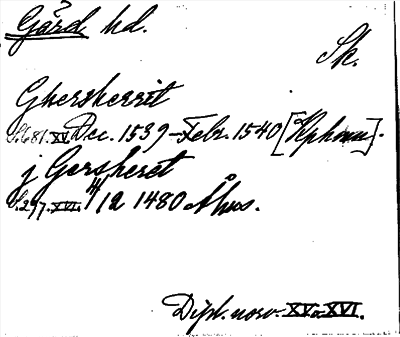 Gärd hd.
Sk.
Gherherrit
S. 681. XV. Dec. 1539-Febr. 1540 [Kphamn].
j Gersheret
S. 297. XVI. 4/12 1480 Åhus.
Dipl. norv. XV o XVI.